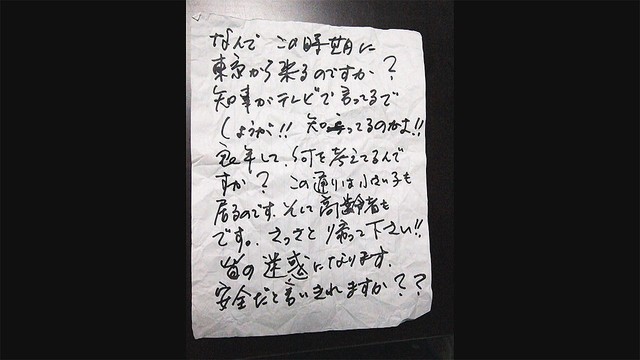 なんで この時期に
東京から来るのですか?
知事がテレビで言ってるで
しょうが!! 知ってるのかよ!!
良い年して、何を考えてるんで
すか? この通りは小さい子も
居るのです。そして高齢者も
です。さっさと帰って下さい!!
皆の迷惑になります。
安全だと言いきれますか??